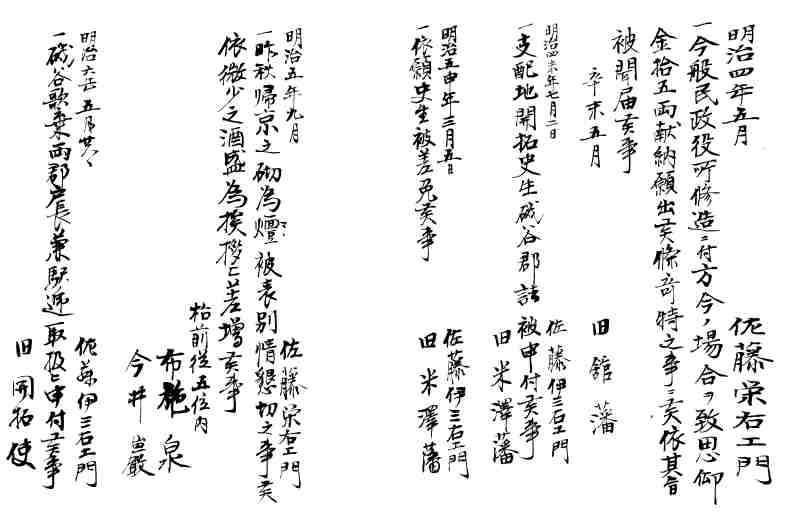 明治四年五月
佐藤栄右エ門
一今般民政役所修造ニ付方今ノ場合ヲ致思仰
金拾五両献納願出候條奇特之事ニ候依其旨
被聞届候事
辛未五月
旧舘藩
明治四未年七月二日
佐藤伊三右エ門
一支配地開拓史生磯谷郡詰被申付候事
旧米澤藩
明治五申年三月五日
佐藤伊三右エ門
一依願史生被差免候事
旧米澤藩
明治五年九月
佐藤栄右エ門
一昨秋帰京之砌為 被表別情懇切之事候
依微少之酒盛為挨拶ニ差増候事
松前従五位内
布施泉
今井巌
明治六年五月廿八
佐藤伊三右エ門
一磯谷歌棄両郡戸長兼駅逓取扱ニ申付候事
旧開拓使